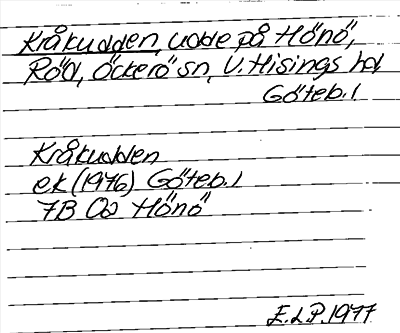 Kråkudden, udde på Hönö,
Röd, Öckerö sn, V. Hisings hd,
Göteb. l
Kråkudden
ek (1976) Göteb. l
7B 0a Hönö
E.L.P. 1977